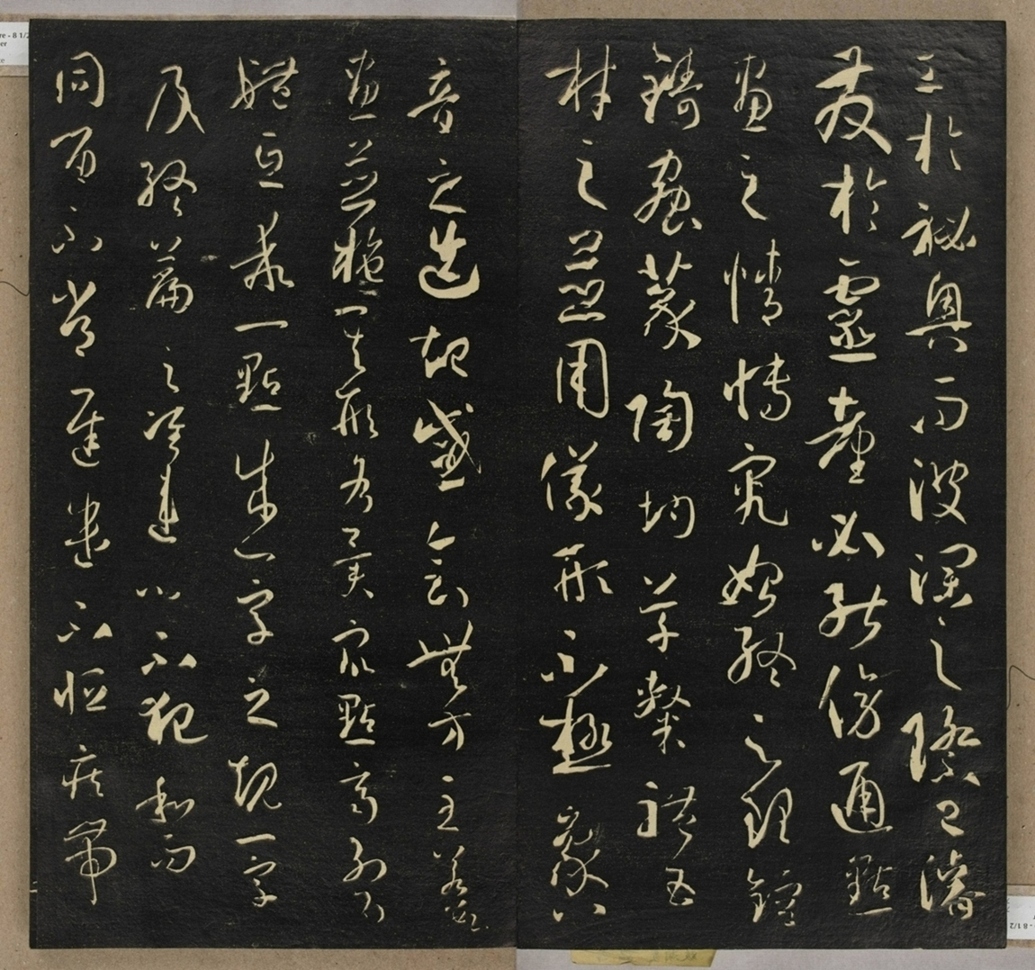 工於祕奧而波瀾之際已濬
發於靈臺必能傍通點
畫之情博究始終之理鎔
鑄蟲篆陶均草隸體五
材之並用儀形不極象八
音之迭起感會無方至若數
畫並施其形各異衆點齊列為
體互乖一點成一字之規一字
乃終篇之准違而不犯和而
同留不常遲遣不恒疾帶